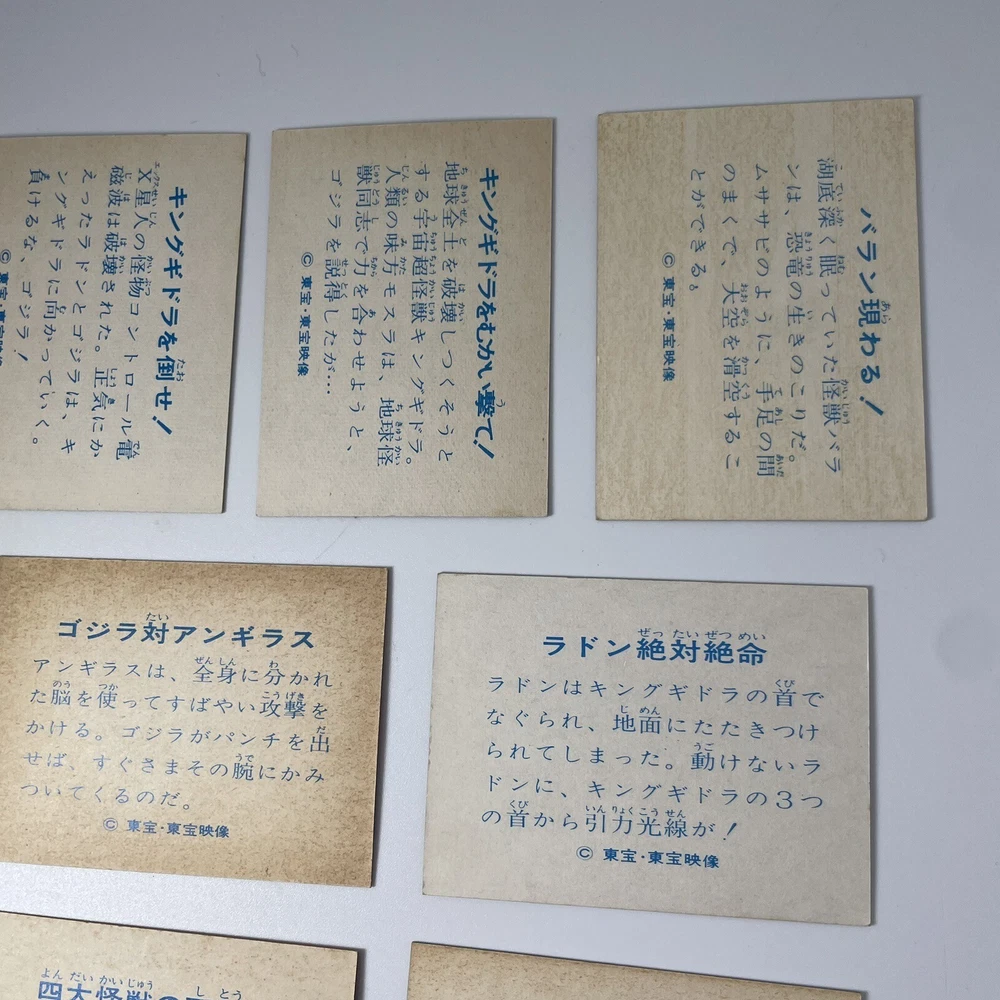 キングギドラを倒せ！
X星人の怪物コントロール電
磁波は破壊された。正気にか
えったラドンとゴジラは、キ
ングギドラに向かっていく。
負けるな、ゴジラ！
© 東宝・東宝映像
キングギドラをむかい撃て！
地球全土を破壊しつくそうと
する宇宙超怪獣キングギドラ。
人類の味方モスラは、地球怪
獣同志で力を合わせようと、
ゴジラを説得したが…
© 東宝・東宝映像
バラン現わる！
湖底深く眠っていた怪獣バラ
ンは、恐竜の生きのこりだ。
ムササビのように、手足の間
のまくで、大空を滑空するこ
とができる。
© 東宝・東宝映像
ゴジラ対アンギラス
アンギラスは、全身に分かれ
た脳を使ってすばやい攻撃を
かける。ゴジラがパンチを出
せば、すぐさまその腕にかみ
ついてくるのだ。
© 東宝・東宝映像
ラドン絶対絶命
ラドンはキングギドラの首で
なぐられ、地面にたたきつけ
られてしまった。動けないラ
ドンに、キングギドラの3つ
の首から引力光線が！
© 東宝・東宝映像
四大怪獣の